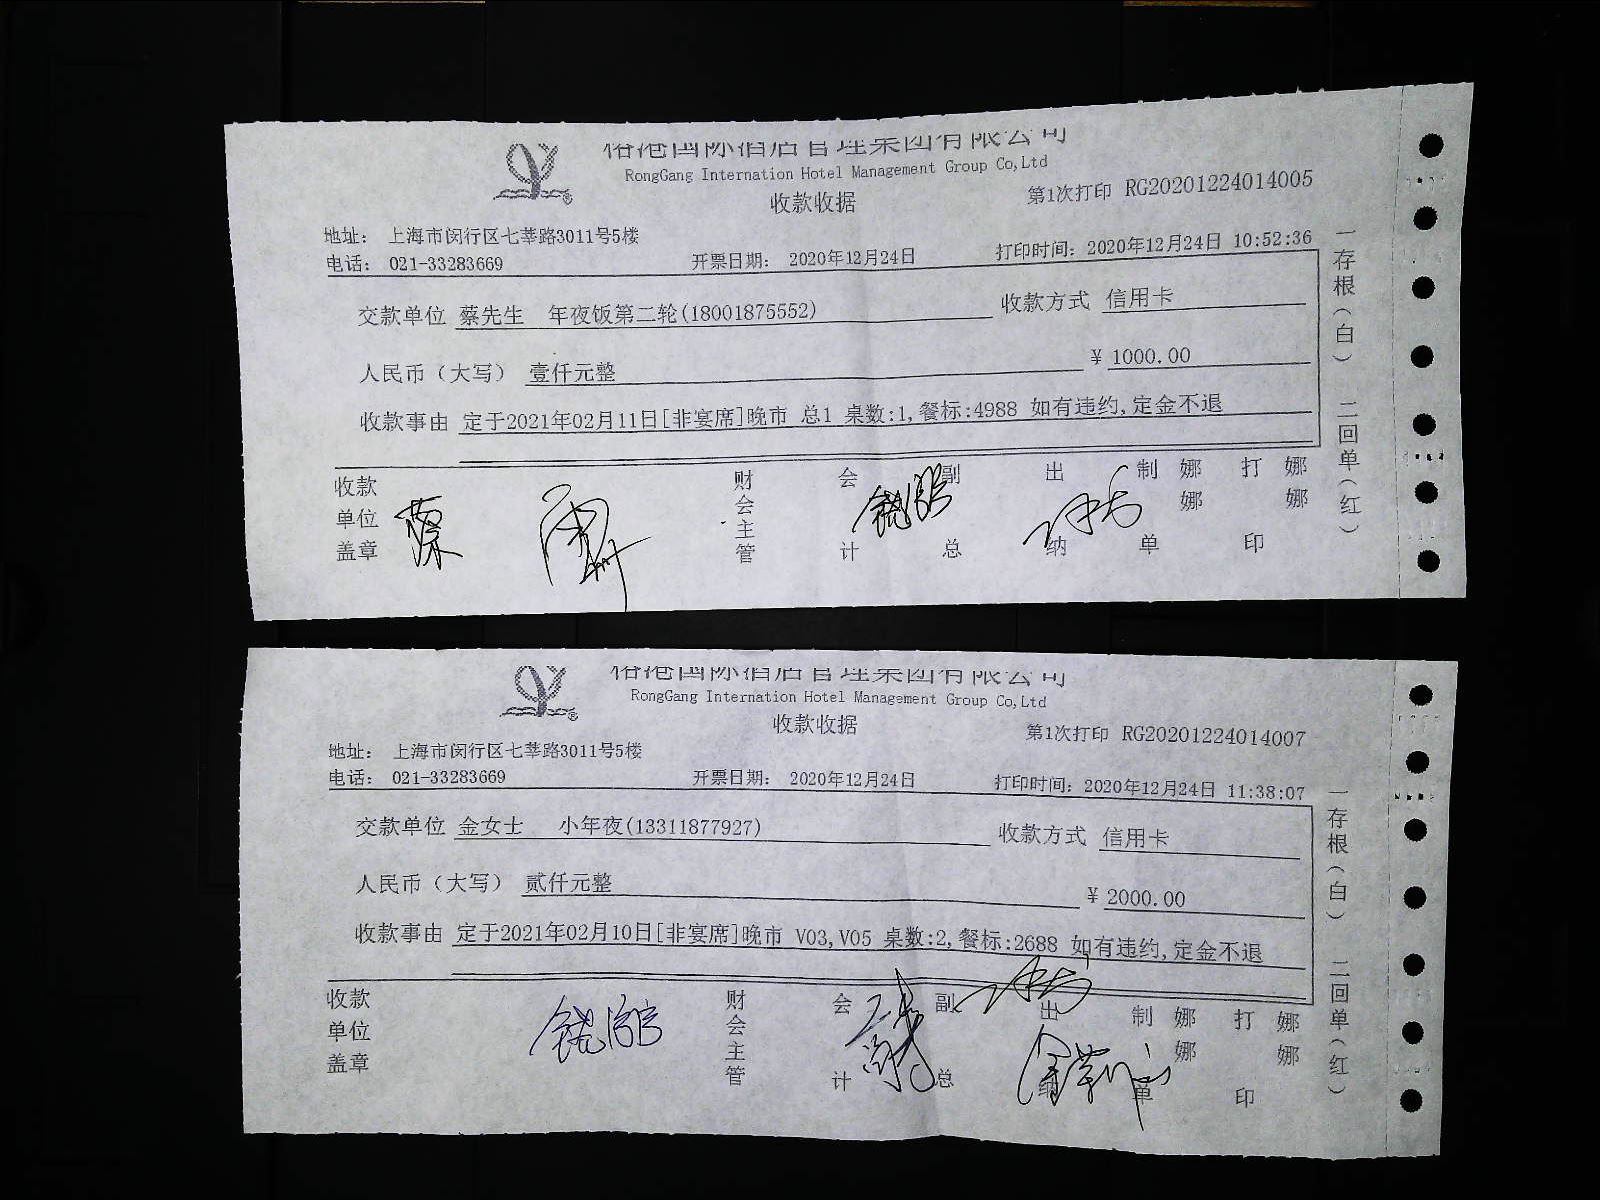 裕港国际酒店管理集团有限公司
RongGang Internation Hotel Management Group Co,Ltd
收款收据
第1次打印 RG20201224014005
地址： 上海市闵行区七莘路3011号5楼
电话： 021-33283669 开票日期： 2020年12月24日 打印时间：2020年12月24日 10:52:36
交款单位 蔡先生 年夜饭第二轮(18001875552) 收款方式 信用卡
人民币（大写） 壹仟元整 ¥ 1000.00
收款事由 定于2021年02月11日[非宴席]晚市 总1 桌数:1,餐标:4988 如有违约,定金不退
收款单位盖章 财会主管 会计 副总 出纳 制单 娜娜 打印 娜娜
一存根（白） 二回单（红）
裕港国际酒店管理集团有限公司
RongGang Internation Hotel Management Group Co,Ltd
收款收据
第1次打印 RG20201224014007
地址： 上海市闵行区七莘路3011号5楼
电话： 021-33283669 开票日期： 2020年12月24日 打印时间：2020年12月24日 11:38:07
交款单位 金女士 小年夜(13311877927) 收款方式 信用卡
人民币（大写） 贰仟元整 ¥ 2000.00
收款事由 定于2021年02月10日[非宴席]晚市 V03,V05 桌数:2,餐标:2688 如有违约,定金不退
收款单位盖章 财会主管 会计 副总 出纳 制单 娜娜 打印 娜娜
一存根（白） 二回单（红）